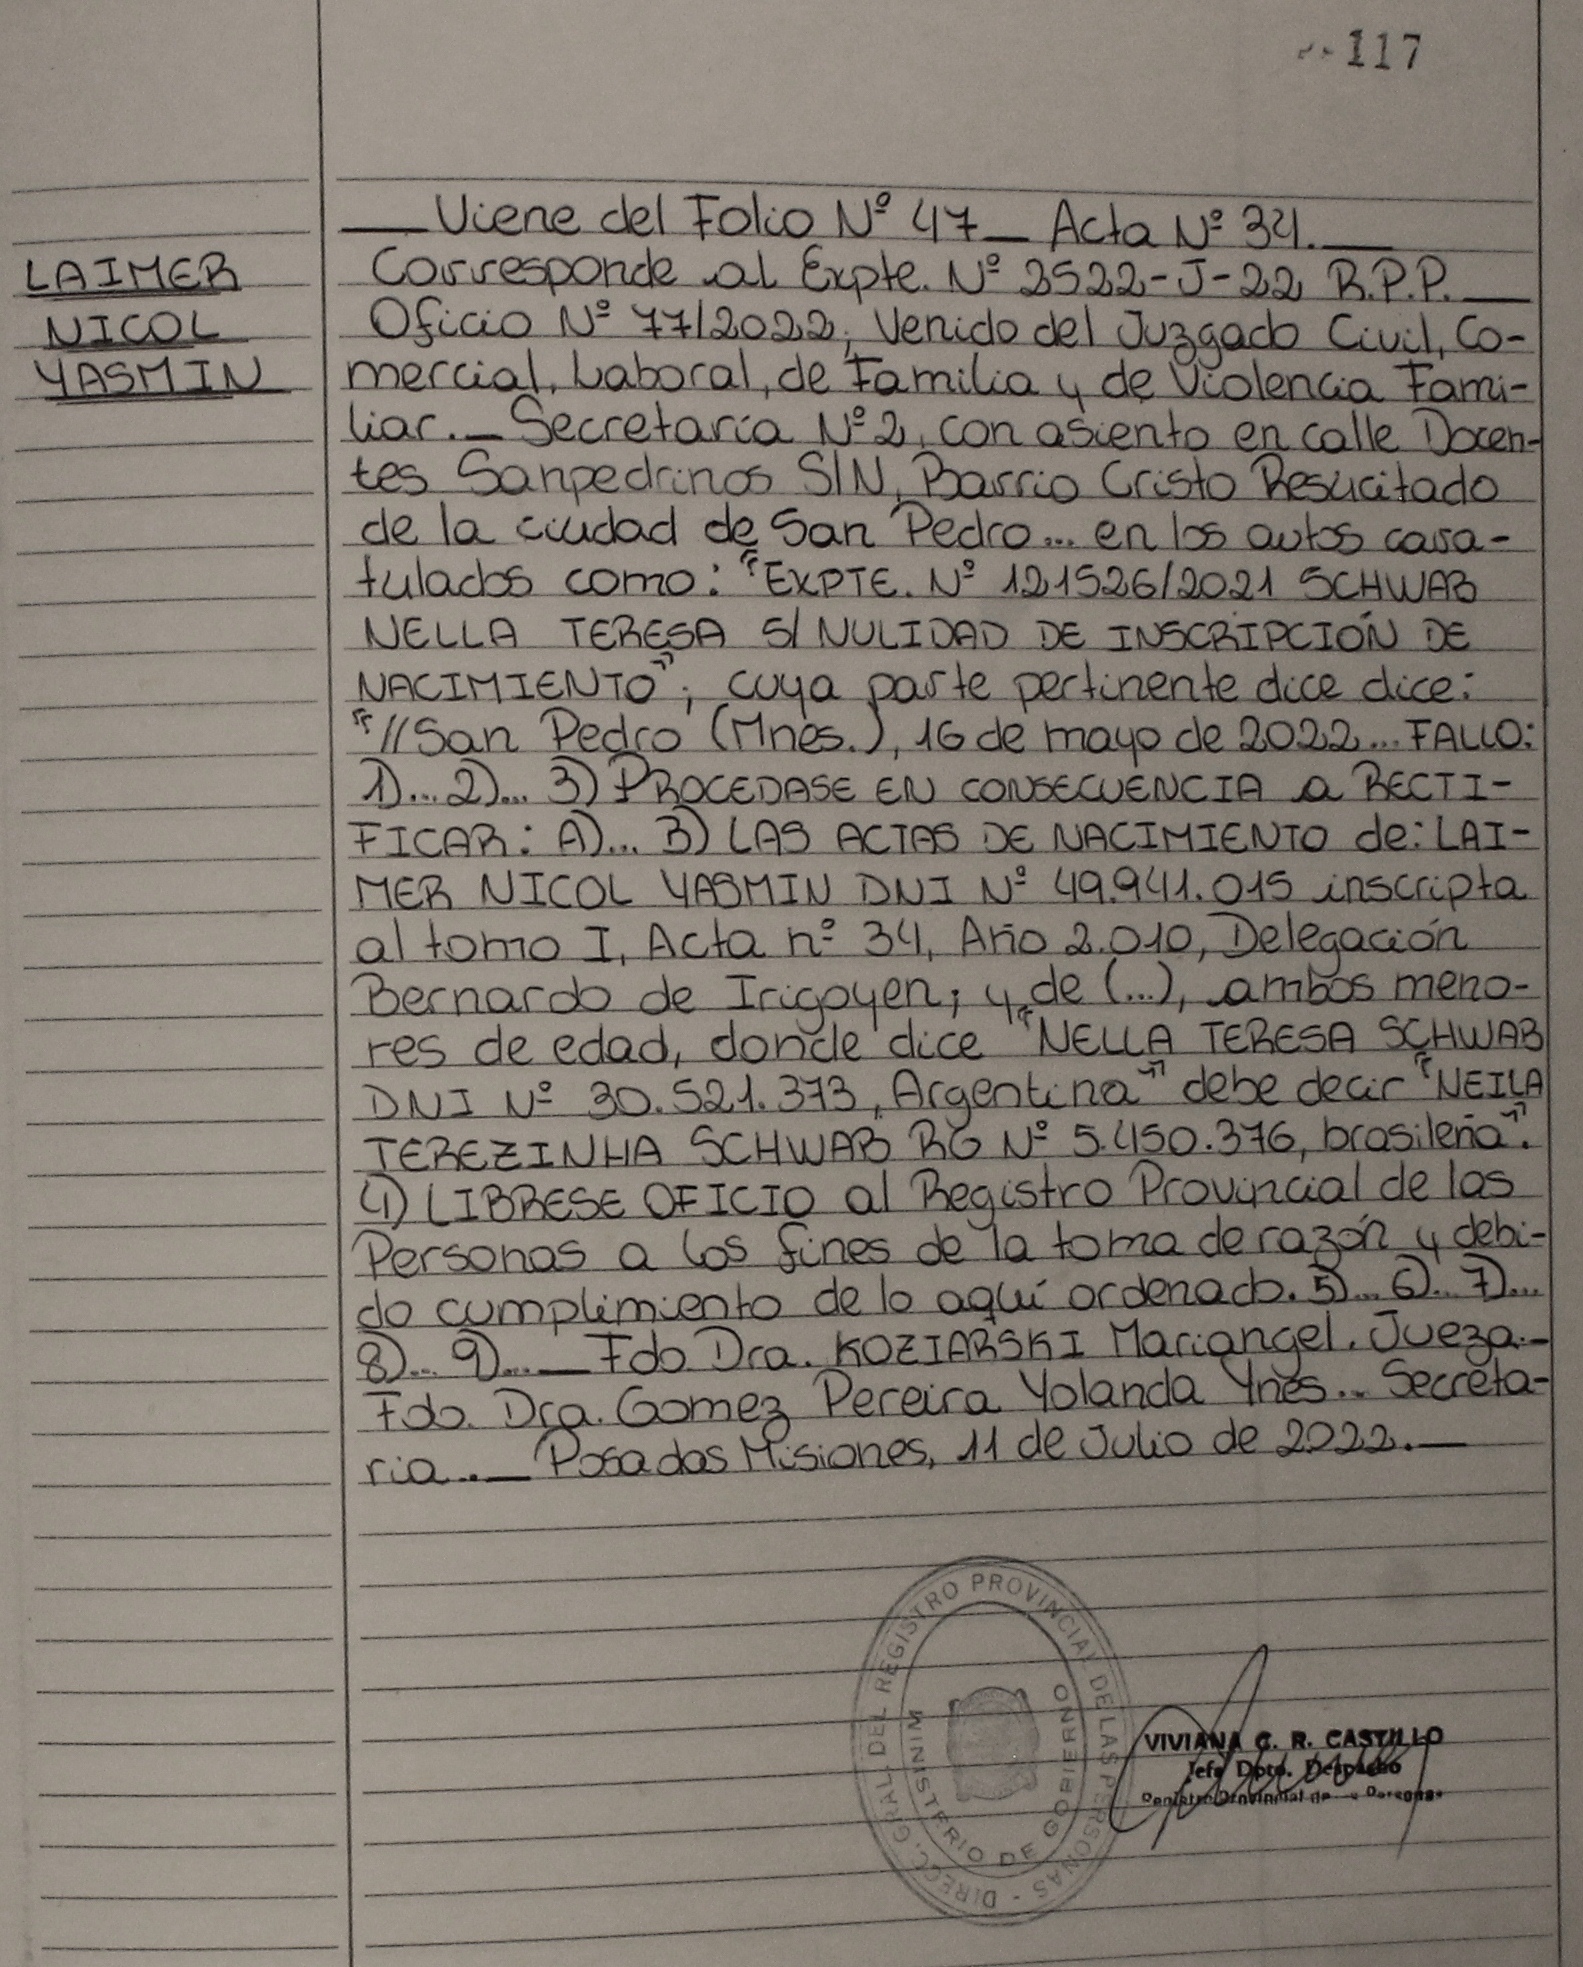 117
LAIMER
NICOL
YASMIN
Viene del Folio Nº 47_ Acta Nº 34.
Corresponde al Expte. Nº 2522-J-22 R.P.P.
Oficio Nº 77/2022, Venido del Juzgado Civil, Co-
mercial, Laboral, de Familia y de Violencia Fami-
liar._ Secretaría Nº 2, con asiento en calle Docen-
tes Sanpedrinos S/N, Barrio Cristo Resucitado
de la ciudad de San Pedro... en los autos cara-
tulados como: "EXPTE. Nº 121526/2021 SCHWAB
NELLA TERESA S/ NULIDAD DE INSCRIPCIÓN DE
NACIMIENTO"; cuya parte pertinente dice dice:
"//San Pedro (Mnes.), 16 de mayo de 2022... FALLO:
1)... 2)... 3) PROCEDASE EN CONSECUENCIA a RECTI-
FICAR: A)... B) LAS ACTAS DE NACIMIENTO de: LAI-
MER NICOL YASMIN DNI Nº 49.941.015 inscripta
al tomo I, Acta nº 34, Año 2.010, Delegación
Bernardo de Irigoyen; y de (...), ambos meno-
res de edad, donde dice "NELLA TERESA SCHWAB
DNI Nº 30.521.373, Argentina" debe decir "NEILA
TEREZINHA SCHWAB RG Nº 5.450.376, brasileña".
4) LIBRESE OFICIO al Registro Provincial de las
Personas a los fines de la toma de razón y debi-
do cumplimiento de lo aquí ordenado. 5)... 6)... 7)...
8)... 9)..._ Fdo Dra. KOZIARSKI Mariangel. Jueza.-
Fdo. Dra. Gomez Pereira Yolanda Ynés... Secreta-
ria._ Posadas Misiones, 11 de Julio de 2022._
DIRECC. GRAL. DEL REGISTRO PROVINCIAL DE LAS PERSONAS -
MINISTERIO DE GOBIERNO
VIVIANA C. R. CASTILLO
Jefe Dpto. Despacho
Registro Provincial de Personas